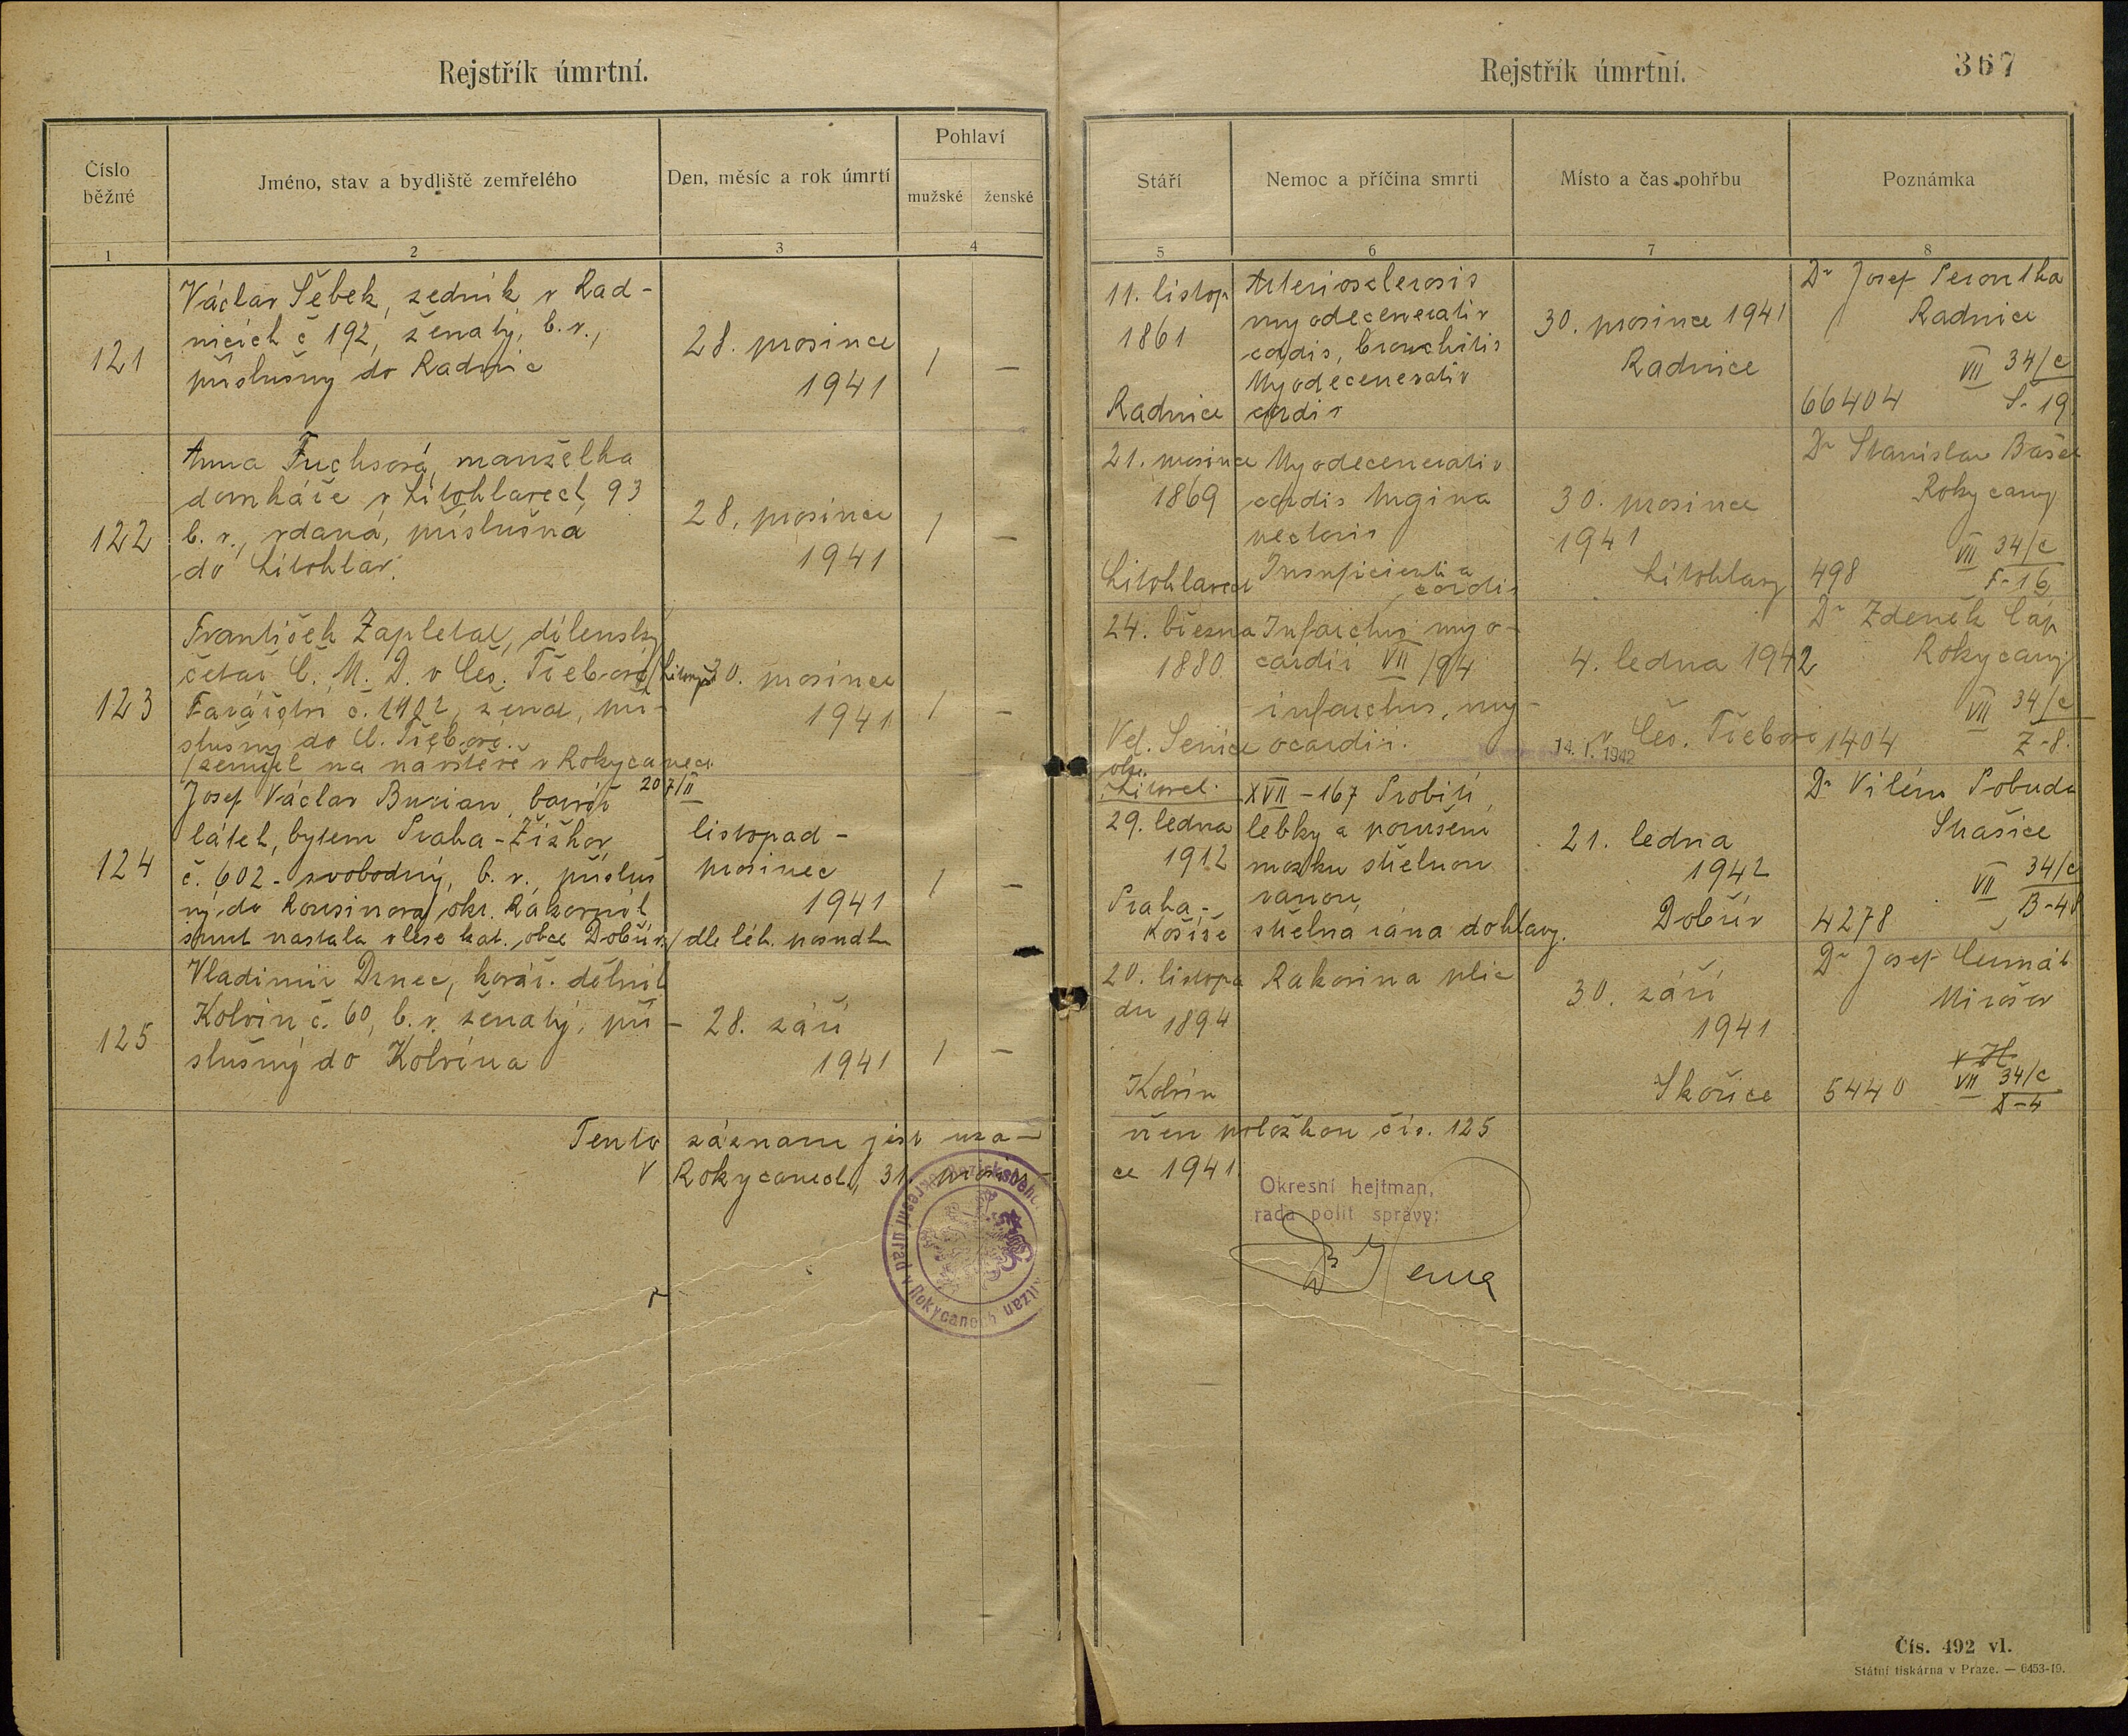 Rejstřík úmrtní.
Číslo běžné
Jméno, stav a bydliště zemřelého
Den, měsíc a rok úmrtí
Pohlaví
mužské
ženské
1
2
3
4
121
Václav Šebek, zedník v Rad-
nicích č 192, ženatý, b.v.,
příslušný do Radnic
28. prosince
1941
/
—
122
Anna Fuchsová, manželka
domkáře v Litohlavech 93
b. v., vdaná, příslušna
do Litohlav.
28. prosince
1941
/
—
123
František Zapletal, dílenský
četař Č. M. D. v Čes. Třebové
č. 1902, ženat, pří-
slušný do Č. Třebové.
/zemřel na návštěvě v Rokycanech
207/II
30. prosince
1941
/
—
124
Josef Václav Burian,
látek, bytem Praha-Žižkov
č. 602 - svobodný, b. v., přísluš
ný do Rousinova, okr. Rakovník
smrt nastala v lese kat. obce Dobřív / dle lék. posudku
listopad -
prosinec
1941
/
—
125
Vladimír Drnec, kovář. dělník
Kolvín č. 60, b. v. ženatý, pří-
slušný do Kolvína
28. září
1941
/
—
Tento záznam jest uza-
V Rokycanech, 31. prosin
Okresní úřad v Rokycanech
Rejstřík úmrtní.
367
Stáří
Nemoc a příčina smrti
Místo a čas pohřbu
Poznámka
5
6
7
8
11. listop
1861
Radnice
Arteriosclerosis
myodecenerativ
cordis, bronchitis
Myodecenerativ
cordis
30. prosince 1941
Radnice
Dr Josef
Radnice
VII 34/c
66404
Š-19
21. prosince
1869
Litohlavech
Myodecenerativ
cordis Angina
pectoris
Insuficientia
cordis
30. prosince
1941
Litohlavy
Dr Stanislav Bašek
Rokycany
VII 34/c
498
F-16
24. března
1880
Vel. Senice
okr.
Litovel.
Infarctus myo-
cardii VII /94
infarctus, my-
ocardii.
4. ledna 1942
v Čes. Třebové
14. I. 1942
Dr Zdeněk Čáp
Rokycany
VII 34/c
1404
Z-8.
29. ledna
1912
Praha-
Košíře
XVII - 167 Probití
lebky a porušení
mozku střelnou
ranou,
střelná rána do hlavy.
21. ledna
1942
Dobřív
Dr Vilém Pobuda
Strašice
VII 34/c
4278
B-48
20. listopa
du 1894
Kolvín
Rakovina plic
30. září
1941
Skořice
Dr Josef Čermák
Mirošov
VII 34/c
5440
D-4
řen položkou čís. 125
ce 1941.
Okresní hejtman,
rada polit správy:
Čís. 492 vl.
Státní tiskárna v Praze. — 6453-19.